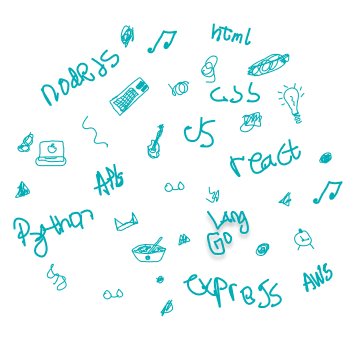 html
nodeJS
CSS
JS
react
APIs
Python
Lang
Go
expreJS
AWS